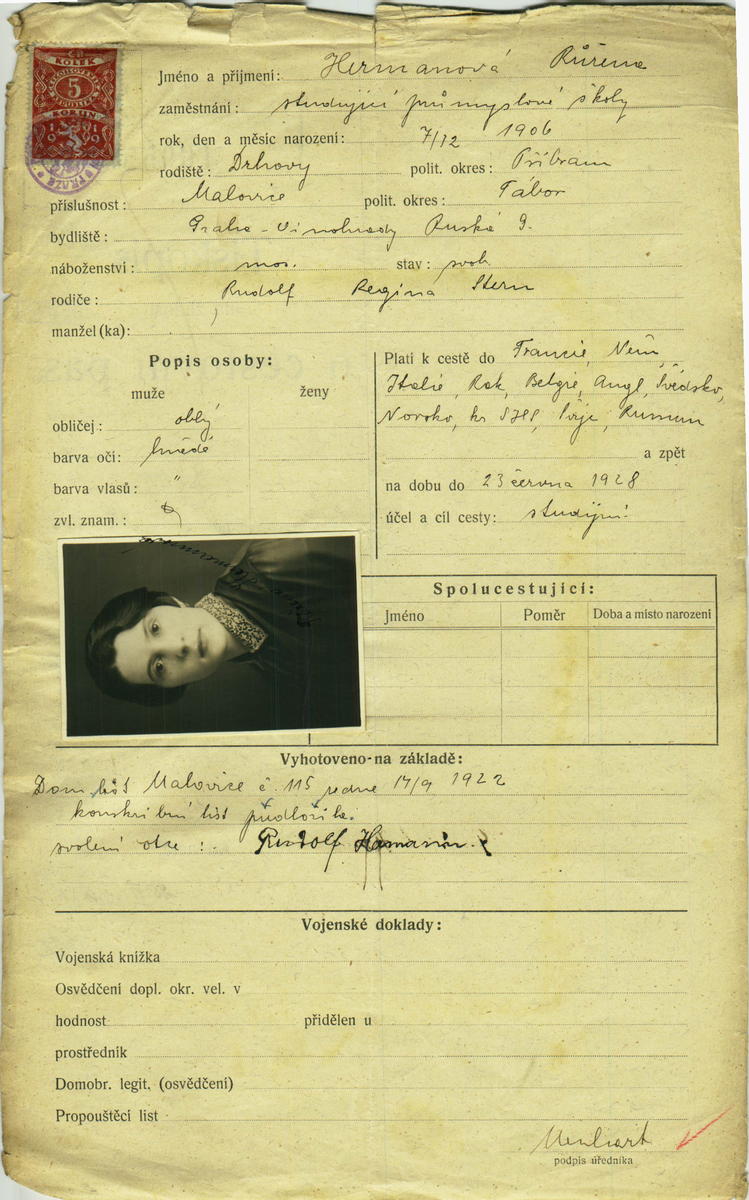 KOLEK
5
KORUN
1919
Jméno a příjmení: Hermanová Růžena
zaměstnání: studující průmyslové školy
rok, den a měsíc narození: 7/12 1906
rodiště: Drhovy polit. okres: Příbram
příslušnost: Malovice polit. okres: Tábor
bydliště: Praha - Vinohrady Ruská 9.
náboženství: mos. stav: svob.
rodiče: Rudolf Regina Stern
manžel (ka):
Popis osoby:
muže ženy
obličej: oblý
barva očí: hnědé
barva vlasů: "
zvl. znam.:
Platí k cestě do Francie, Něm,
Italie, Rak, Belgie, Angl, Švédsko,
Norsko, kr SHS, Švýc, Rumun
a zpět
na dobu do 23 června 1928
účel a cíl cesty: studijní
Spolucestující:
Jméno Poměr Doba a místo narození
Vyhotoveno na základě:
Dom. list Malovice č. 115 ze dne 14/9 1922
konskribní list předložila.
svolení otce: Rudolf
Vojenské doklady:
Vojenská knížka
Osvědčení dopl. okr. vel. v
hodnost přidělen u
prostředník
Domobr. legit. (osvědčení)
Propouštěcí list
podpis úředníka